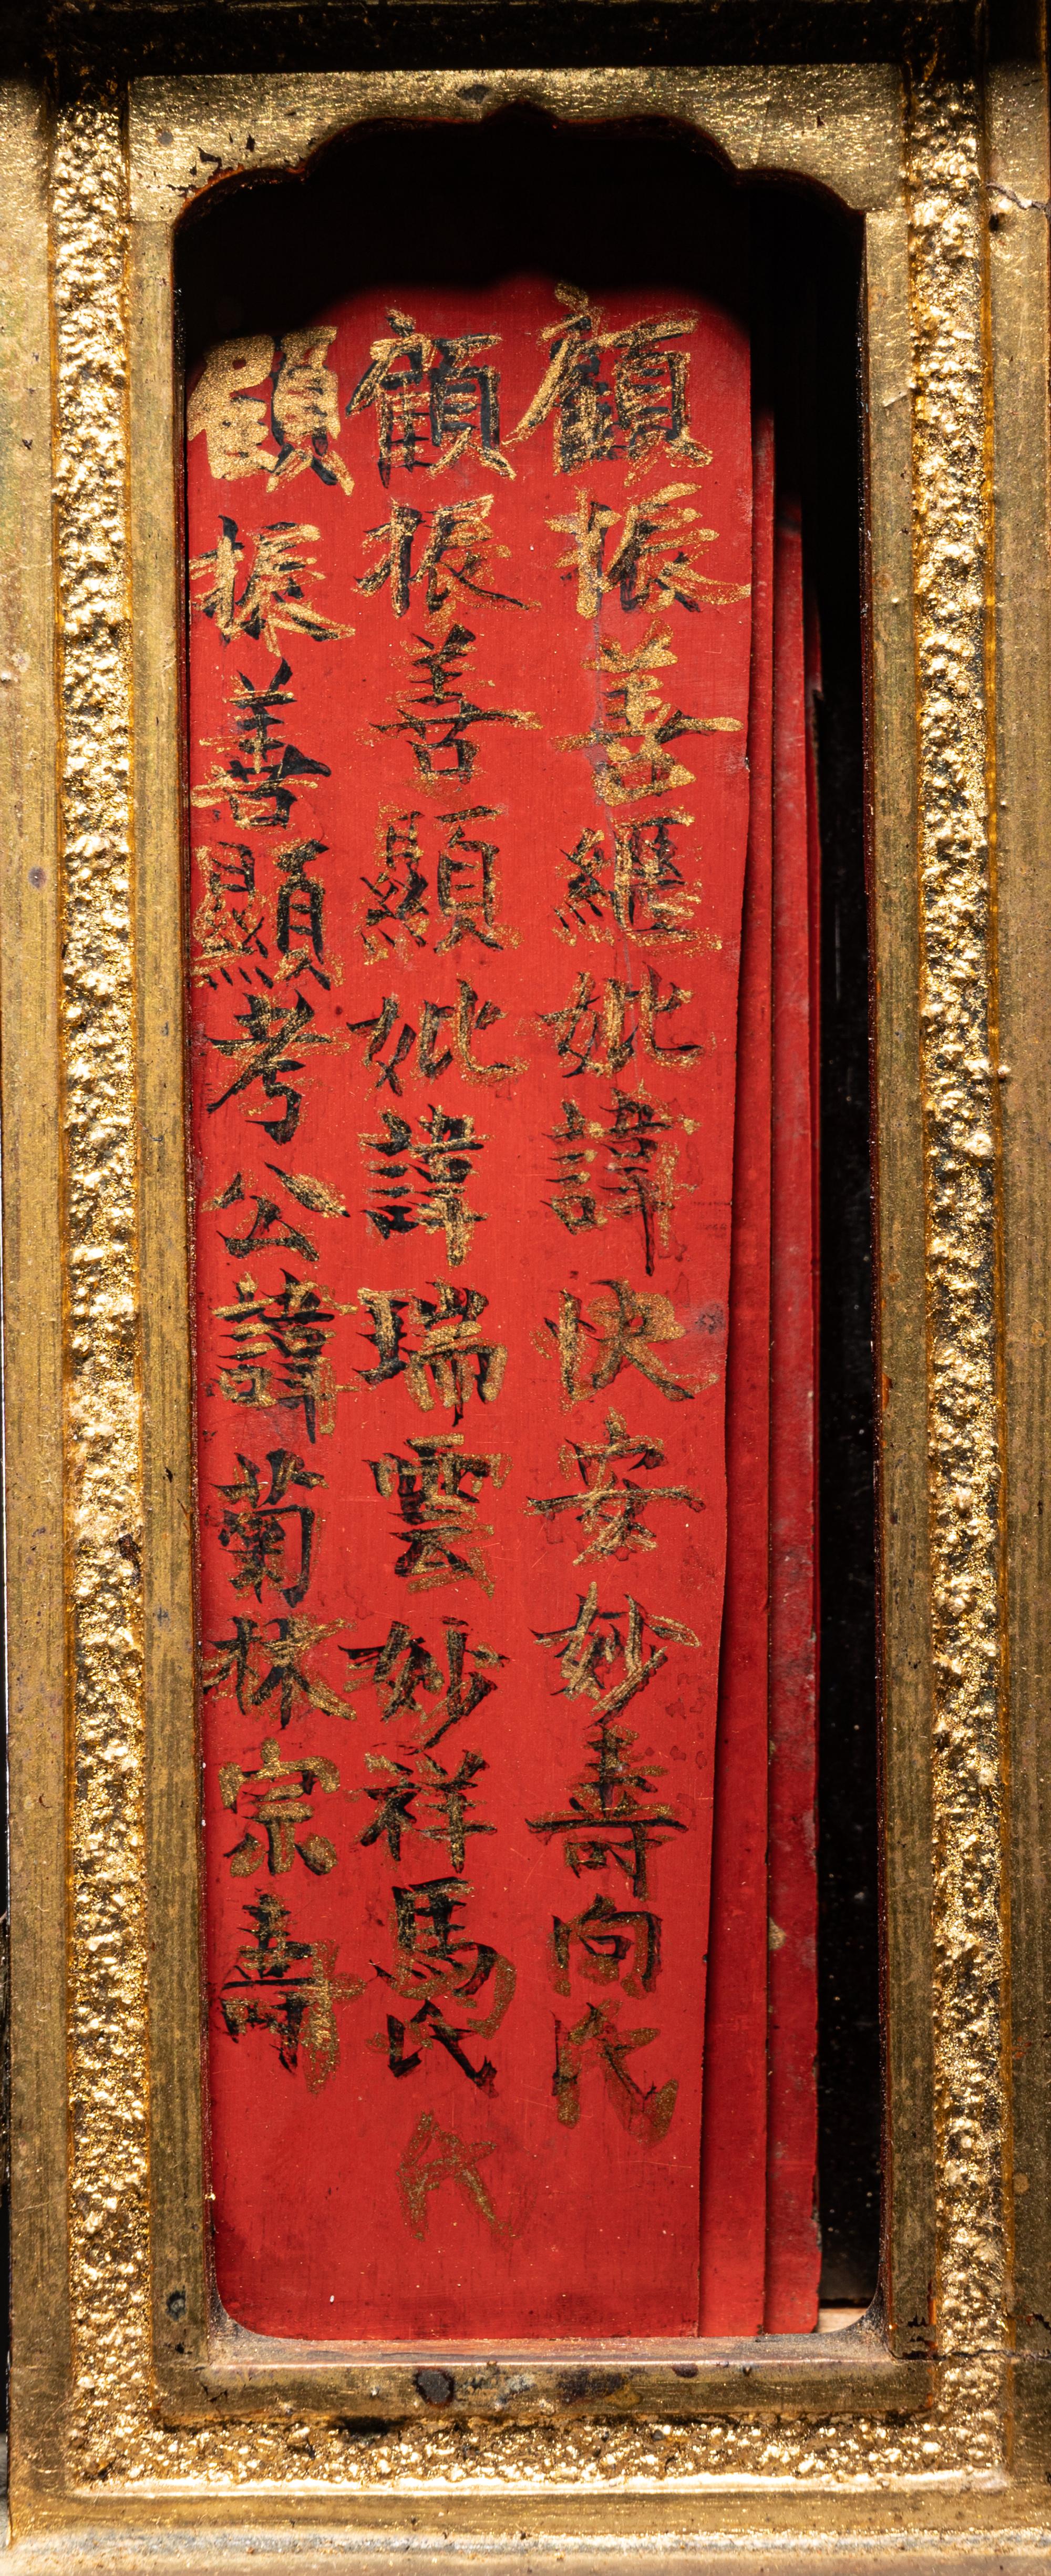 顧振善繼妣諱快安妙壽向氏
顧振善顯妣諱瑞雲妙祥馬氏
顧振善顯考公諱菊林宗壽